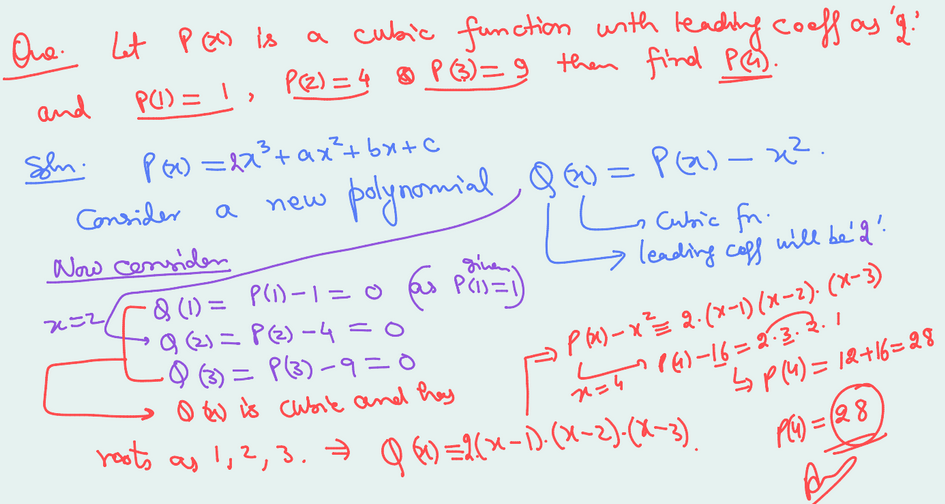 Que. Let P(x) is a cubic function with leading coeff as '2'.
and P(1) = 1, P(2) = 4 & P(3) = 9 then find P(4).
Soln. P(x) = 2x³ + ax² + bx + c
Consider a new polynomial Q(x) = P(x) - x².
→ Cubic fn.
→ leading coeff will be '2'.
Now consider
Q(1) = P(1) - 1 = 0 (as given P(1) = 1)
x = 2
Q(2) = P(2) - 4 = 0
Q(3) = P(3) - 9 = 0
→ Q(x) is cubic and has
roots as 1, 2, 3. ⇒ Q(x) ≡ 2(x-1).(x-2).(x-3).
⇒ P(x) - x² ≡ 2.(x-1)(x-2).(x-3)
x = 4
P(4) - 16 = 2.3.2.1
↳ P(4) = 12 + 16 = 28
P(4) = 28